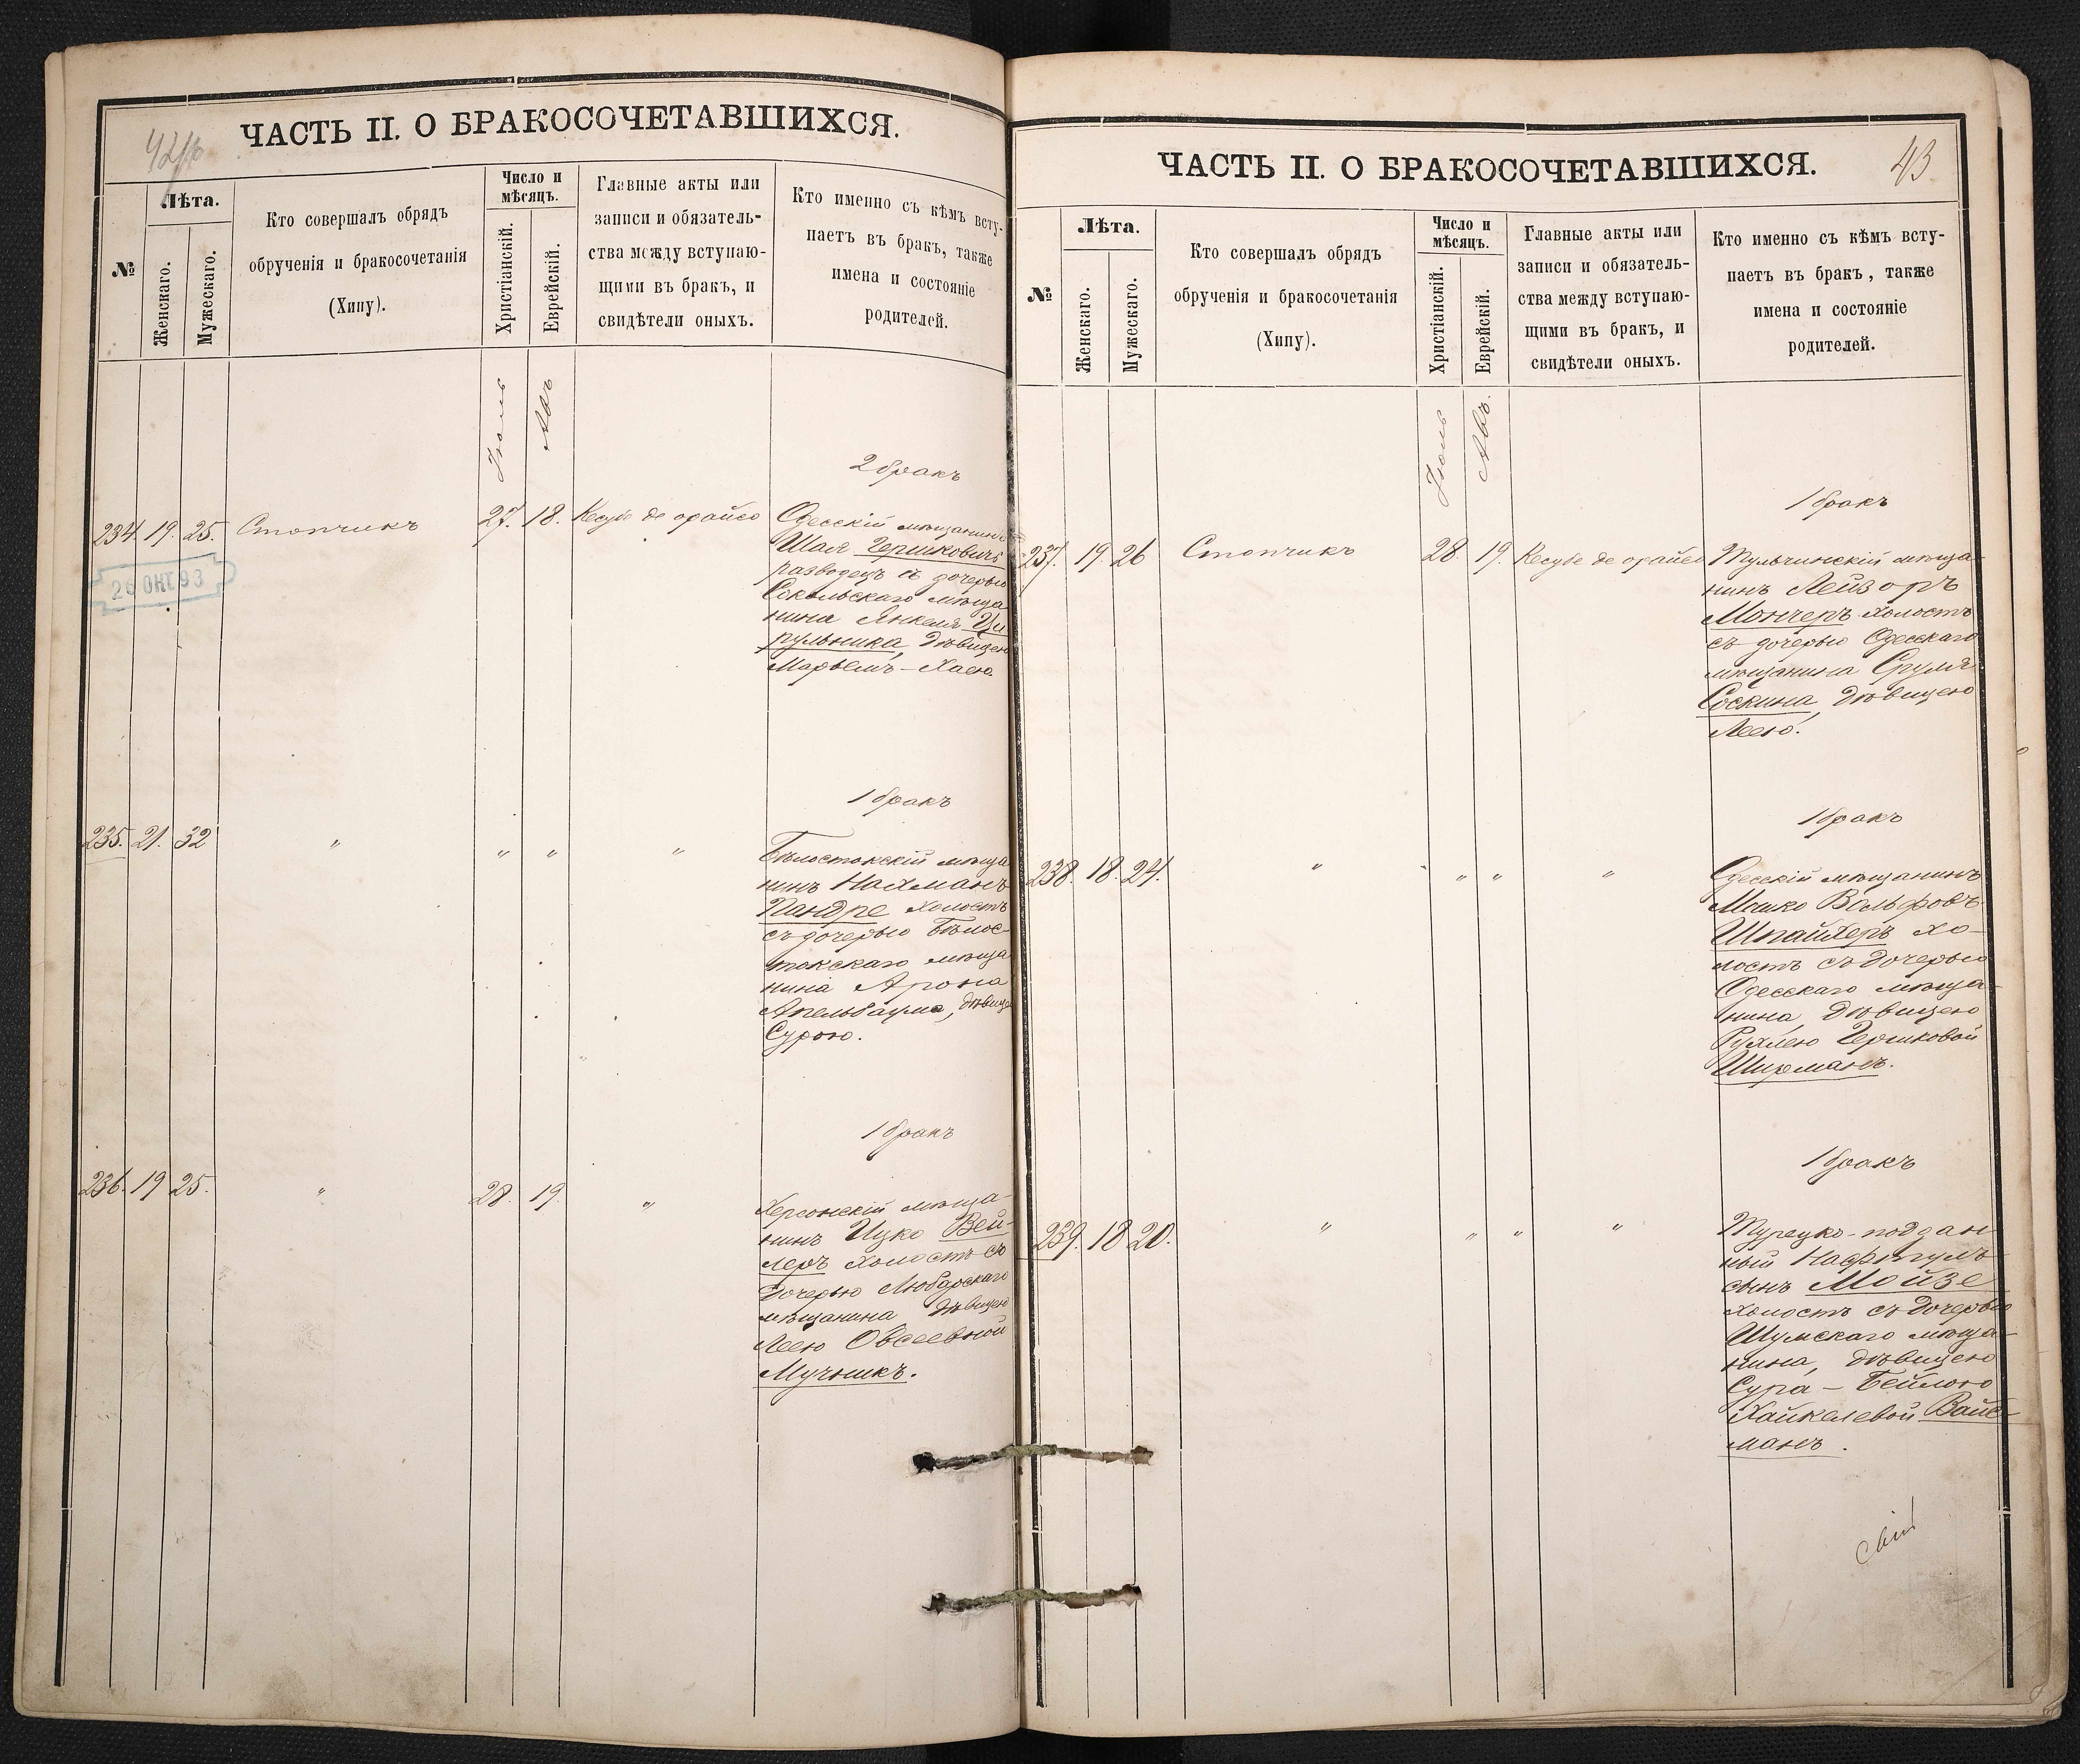 42об
ЧАСТЬ II. О БРАКОСОЧЕТАВШИХСЯ.
№
Лѣта.
Женскаго.
Мужескаго.
Кто совершалъ обрядъ
обрученія и бракосочетанія
(Хипу).
Число и
мѣсяцъ.
Христіанскій.
Еврейскій.
Главные акты или
записи и обязатель-
ства между вступаю-
щими въ бракъ, и
свидѣтели оныхъ.
Кто именно съ кѣмъ всту-
паетъ въ бракъ, также
имена и состояніе
родителей.
Іюль
Авъ
2 бракъ
234. 19. 25. Стопчикъ 27. 18. Кесубе де орайсо
Одесскій мѣщанинъ
Шая Гершковичъ
разводецъ съ дочерью
Сокольскаго мѣща
нина Янкеля Ци
рульника, дѣвицею
Марьемъ-Хаею.
26 ОКТ 93
1 бракъ
235. 21. 32 " " " "
Бѣлостокскій мѣща
нинъ Нахманъ
Пандре холостъ
съ дочерью Бѣлос-
токскаго мѣща
нина Арона
Апельбаума, дѣвице
Сурою.
1 бракъ
236. 19 25. " 28. 19. "
Херсонскій мѣща-
нинъ Ицко Вей-
леръ холостъ съ
дочерью Любарскаго
мѣщанина дѣвицею
Леею Овсеевной
Мучникъ.
43
ЧАСТЬ II. О БРАКОСОЧЕТАВШИХСЯ.
№
Лѣта.
Женскаго.
Мужескаго.
Кто совершалъ обрядъ
обрученія и бракосочетанія
(Хипу).
Число и
мѣсяцъ.
Христіанскій.
Еврейскій.
Главные акты или
записи и обязатель-
ства между вступаю-
щими въ бракъ, и
свидѣтели оныхъ.
Кто именно съ кѣмъ всту-
паетъ въ бракъ, также
имена и состояніе
родителей.
Іюль
Авъ.
1 бракъ
237. 19. 26 Стопчикъ 28. 19. Кесубе де орайсо
Тульчинскій мѣща-
нинъ Лейзоръ
Мончеръ холостъ
съ дочерью Одесскаго
мѣщанина Сруля
Соскина, дѣвицею
Леею.
1 бракъ
238. 18. 24. " " " "
Одесскій мѣщанинъ
Мошко Вольфовъ
Шпайхеръ хо-
лостъ съ дочерью
Одесскаго мѣща-
нина, дѣвицею
Рухлею Гершковой
Ширманъ.
1 бракъ
239. 18 20. " " " "
Турецко-поддан
ный Нафтулъ
сынъ Мойзе
холостъ съ дочерью
Шумскаго мѣща-
нина, дѣвицею
Сура-Бейлою
Хайкелевой Вайс-
манъ.